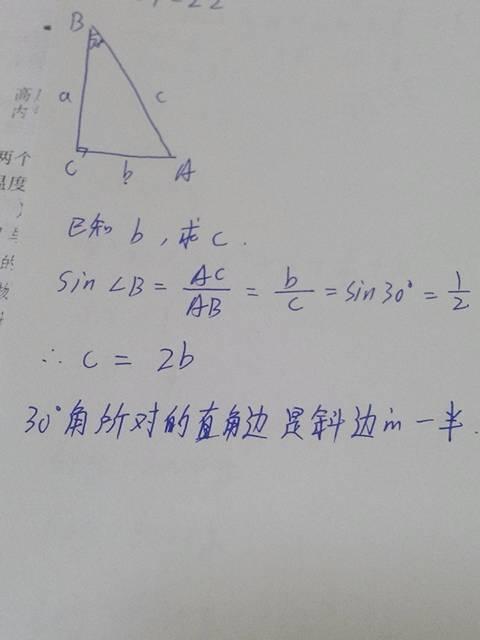 B
a
c
C
b
A
高
内
两个
温度
的
已知 b , 求 c .
sin ∠B = AC/AB = b/c = sin30° = 1/2
∴ c = 2b
30°角所对的直角边是斜边的一半.